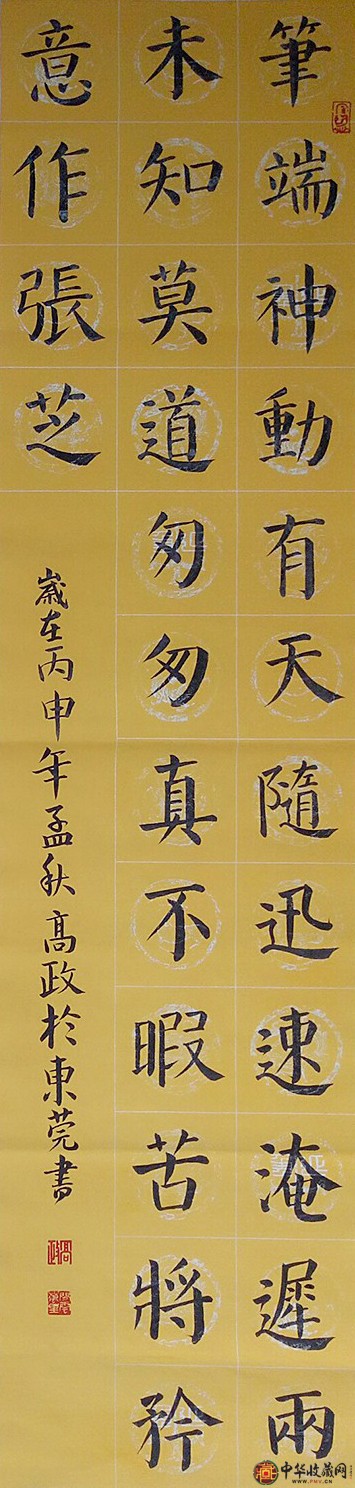 筆端神動有天隨迅速淹遲兩
未知莫道匆匆真不暇苦將矜
意作張芝
歲在丙申年孟秋高政於東莞書
高政
中华收藏网
WWW.PMV.CN